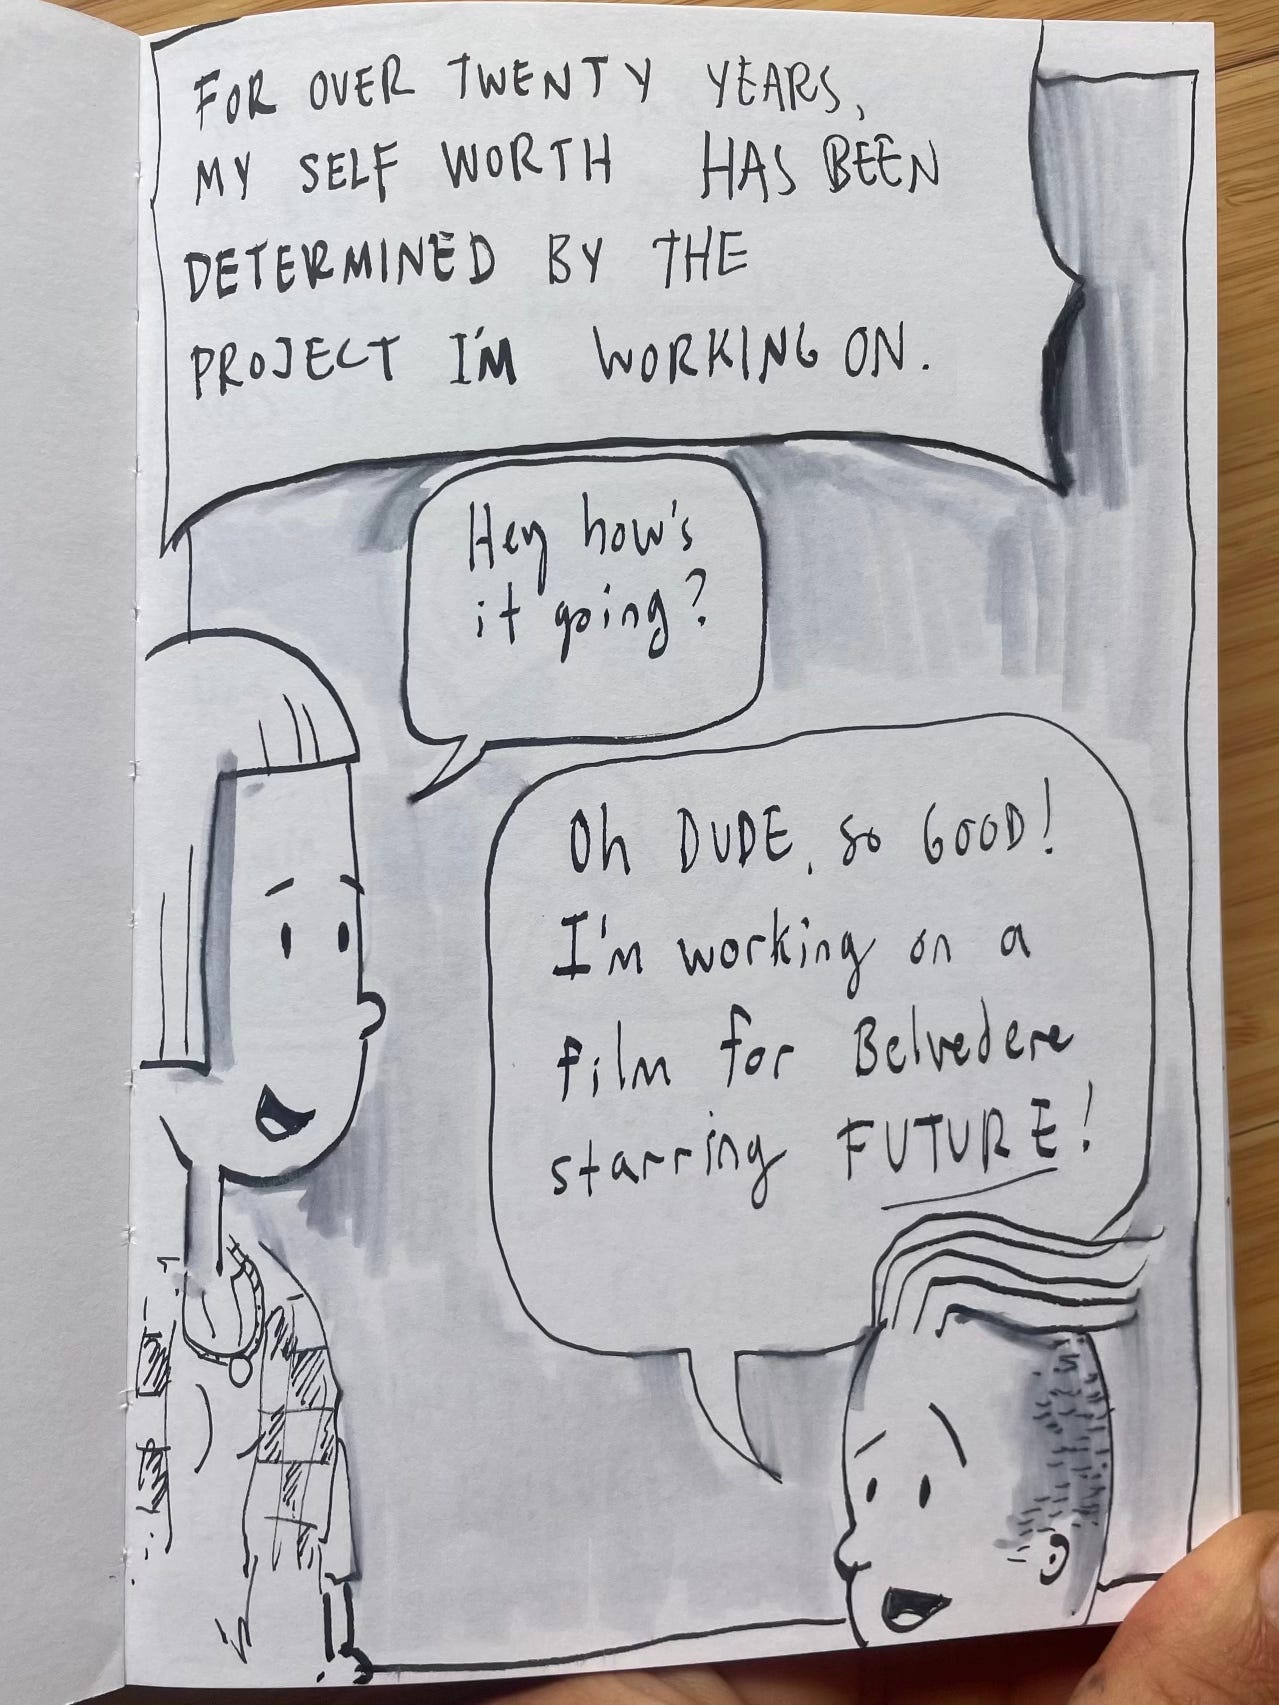 FOR OVER TWENTY YEARS,
MY SELF WORTH HAS BEEN
DETERMINED BY THE
PROJECT I'M WORKING ON.
Hey how's
it going?
Oh DUDE, so GOOD!
I'm working on a
film for Belvedere
starring FUTURE!